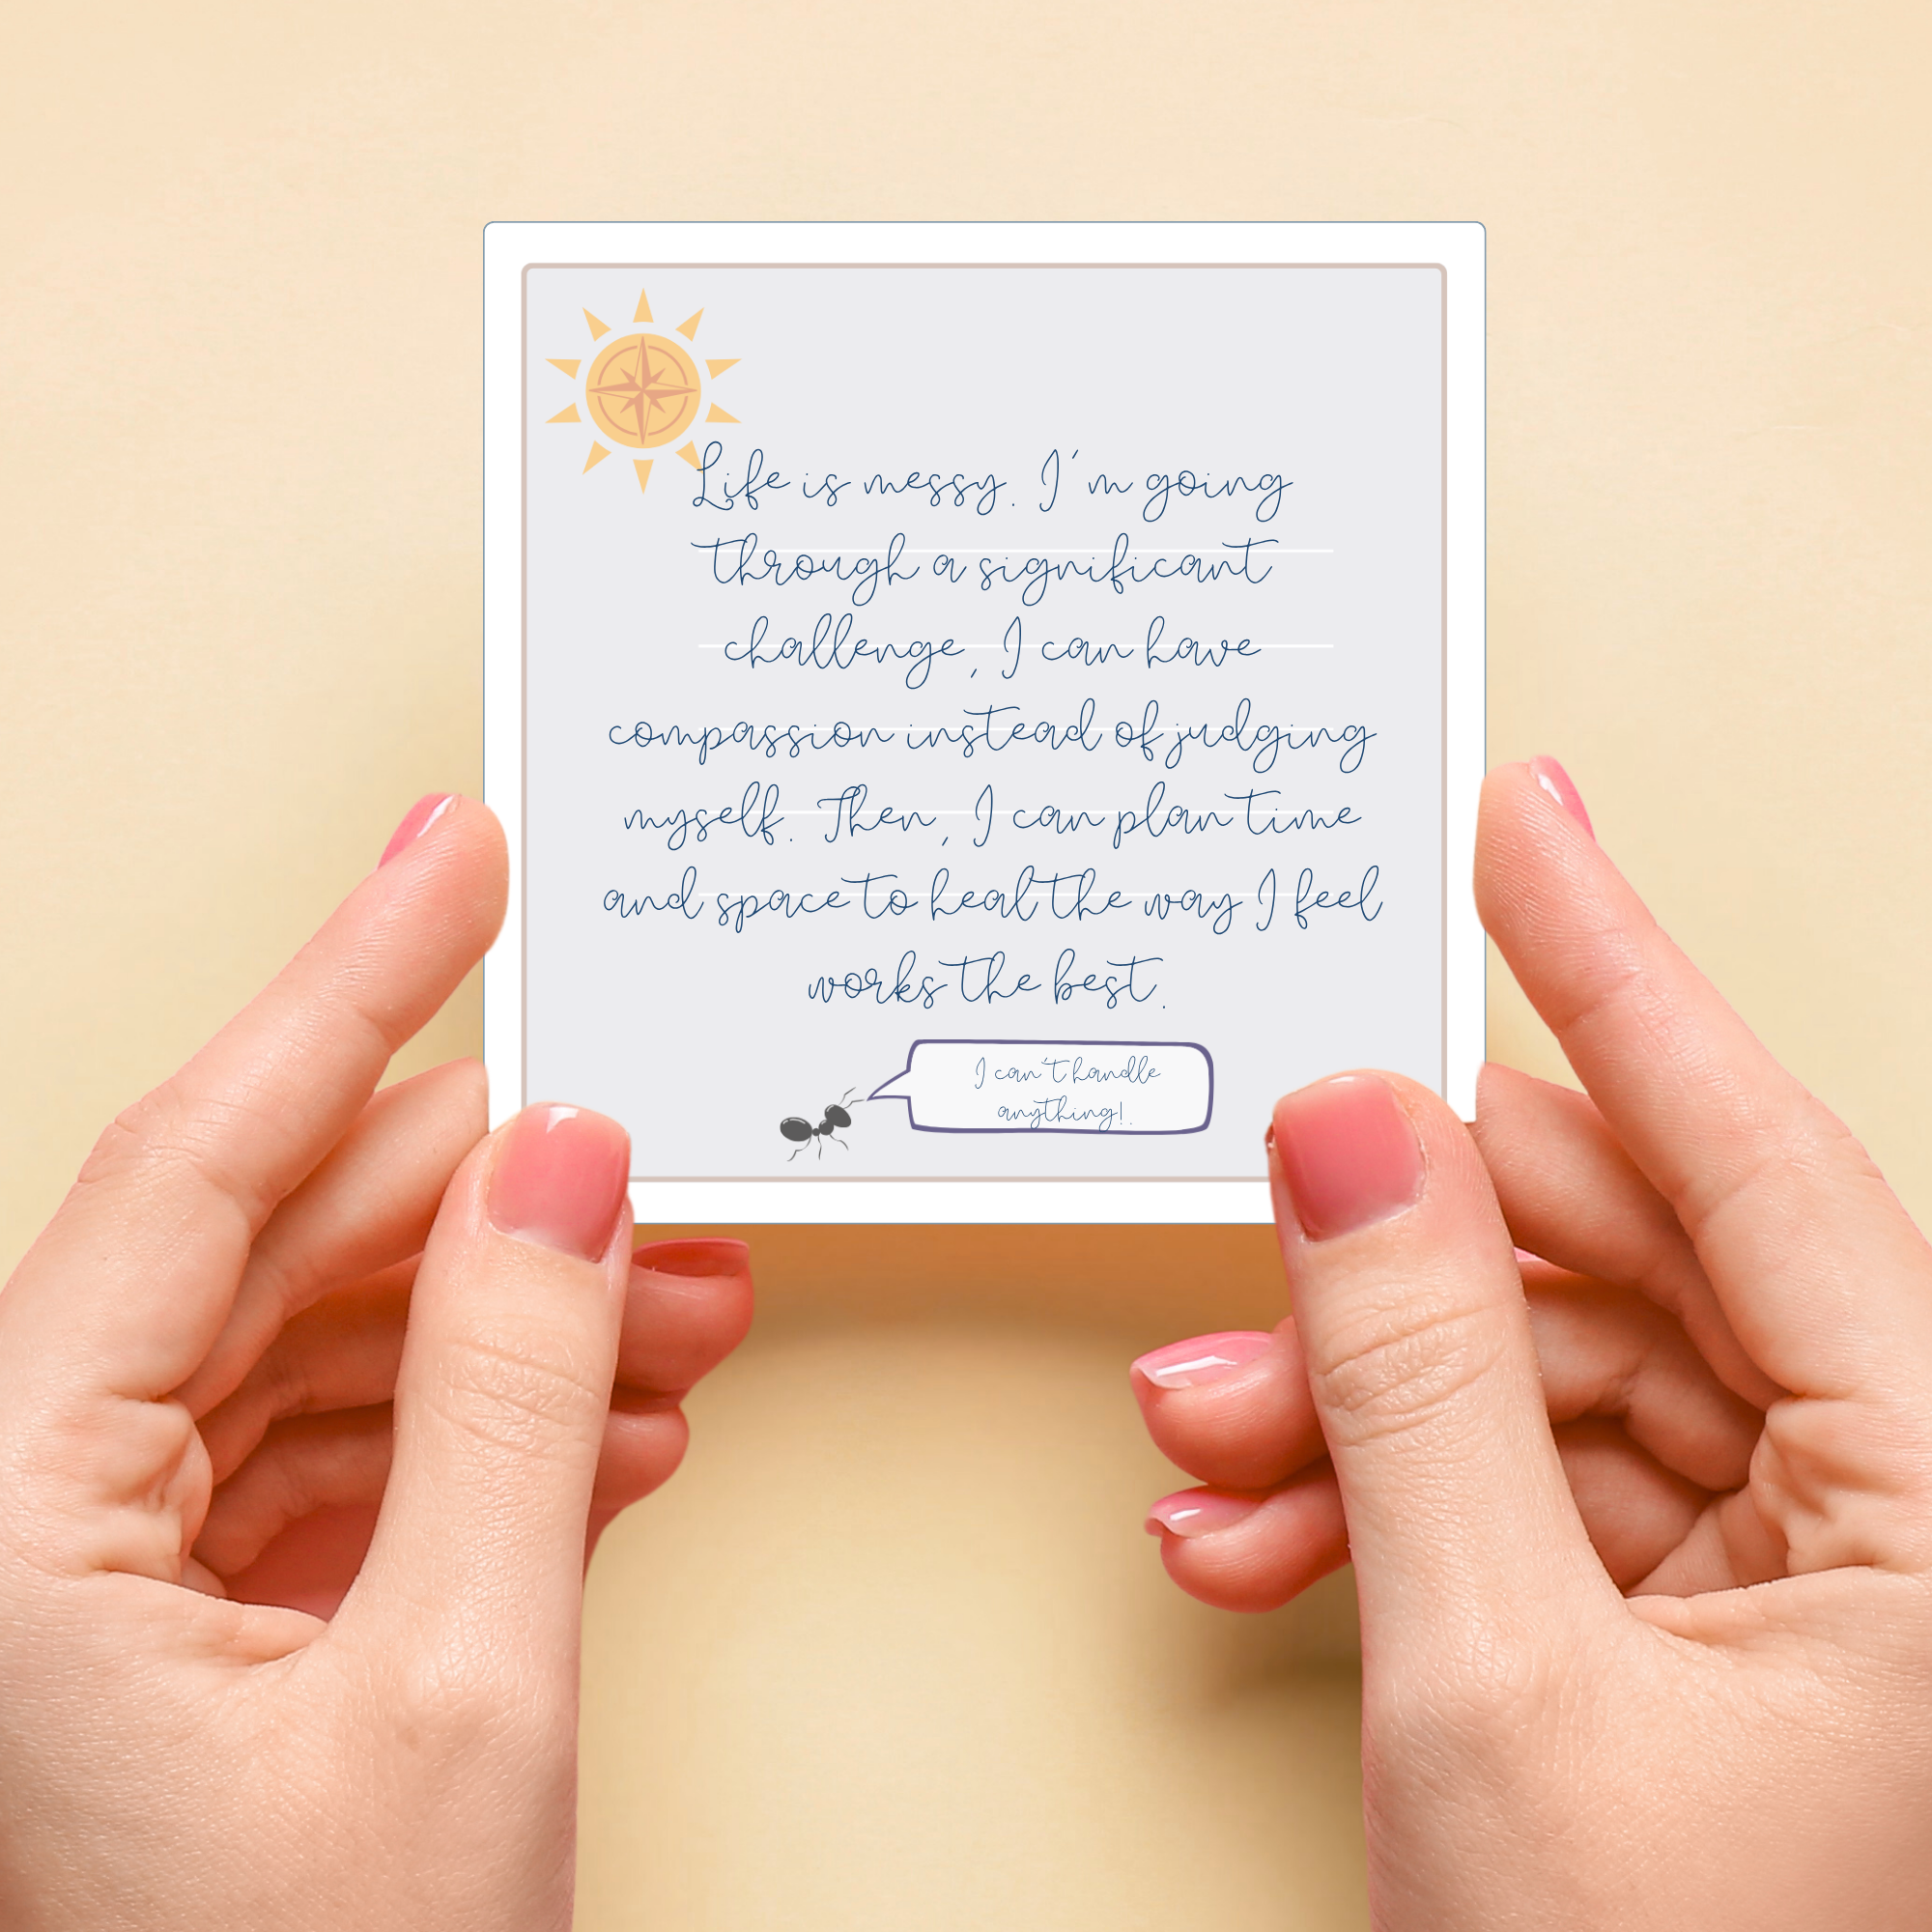 Life is messy. I'm going
through a significant
challenge, I can have
compassion instead of judging
myself. Then, I can plan time
and space to heal the way I feel
works the best.
I can't handle
anything!.